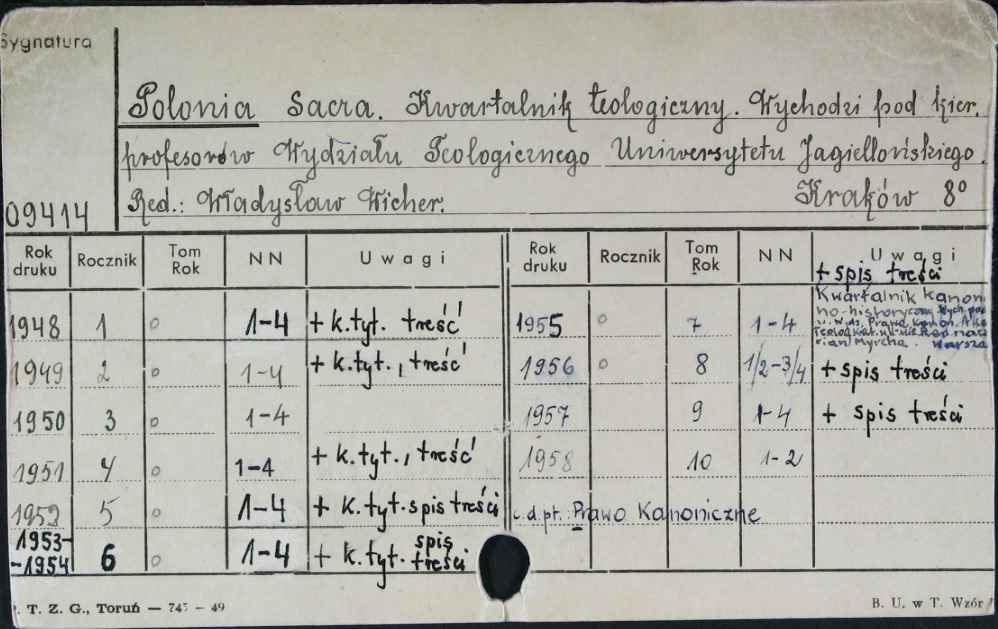 Sygnatura
Polonia Sacra. Kwartalnik teologiczny. Wychodzi pod kier.
profesorów Wydziału Teologicznego Uniwersytetu Jagiellońskiego.
09414 Red.: Władysław Wicher. Kraków 8°
Rok druku Rocznik Tom Rok NN Uwagi
1948 1 o 1-4 + k.tyt. treść
1949 2 o 1-4 + k.tyt., treść
1950 3 o 1-4
1951 4 o 1-4 + k.tyt., treść
1952 5 o 1-4 + k.tyt. spis treści
1953-1954 6 o 1-4 + k.tyt. spis treści
Rok druku Rocznik Tom Rok NN Uwagi
+ spis treści
1955 o 7 1-4 Kwartalnik kanoni
no-historyczny
Prawa kanon.
Myrcha. Warsza
1956 o 8 1/2-3/4 + spis treści
1957 9 1-4 + spis treści
1958 10 1-2
c.d.pt. Prawo Kanoniczne
. T. Z. G., Toruń — 745 — 49
B. U. w T. Wzór